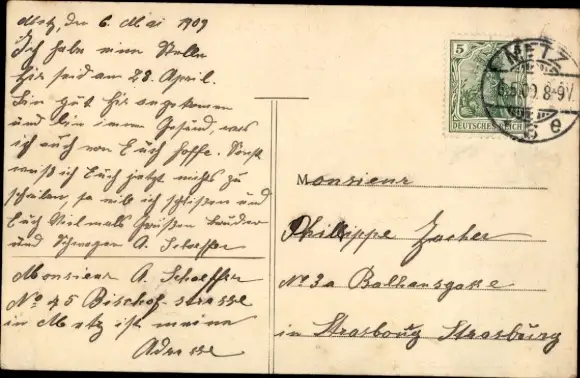 Metz, den 6. Mai 1909
Ich habe eine Stelle
hir seid am 28. April.
Bin gut hir angekomen
und bin imer Gesund, was
ich auch von Euch hoffe. Sonst
weiß ich Euch jetzt nichts zu
schreiben, so will ich schlißen und
Euch Vielmals Grüßen Bruder
und Schwager A. Schaeffer
Monsieur A. Schaeffer
No 45 Bischof strasse
in Metz ist meine
Adresse
5
DEUTSCHES REICH
METZ
6.5.09 8-9V.
e
Monsieur
Phillippe Zacher
No 3a Balkansgasse
in Strasboug Strasburg